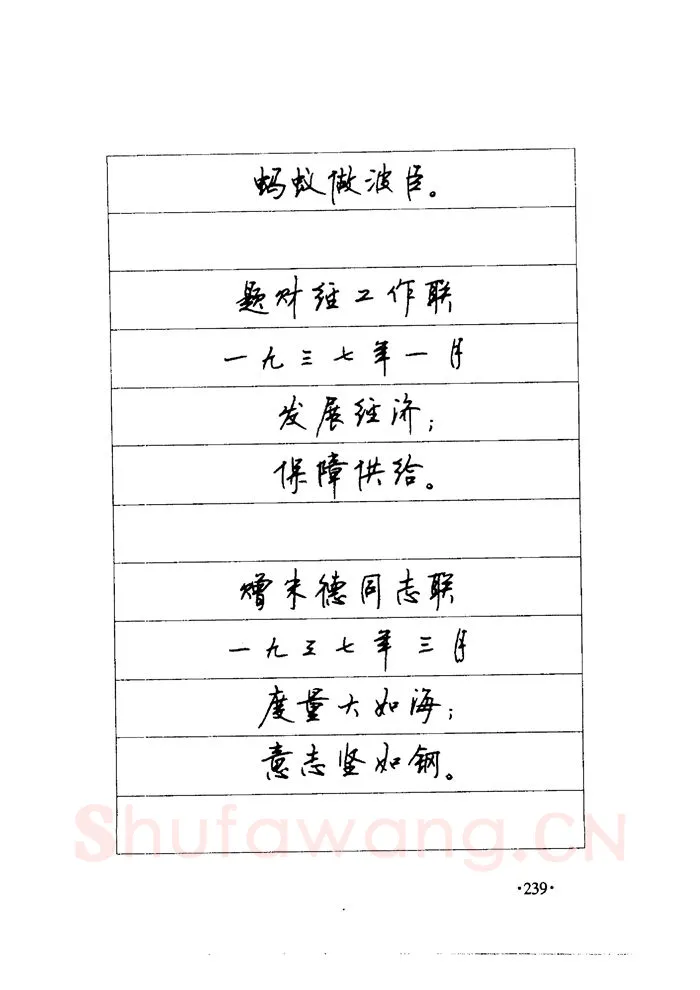 蚂蚁做波臣。
题财经工作联
一九三七年一月
发展经济；
保障供给。
赠朱德同志联
一九三七年三月
度量大如海；
意志坚如钢。
Shufawang.CN
·239·